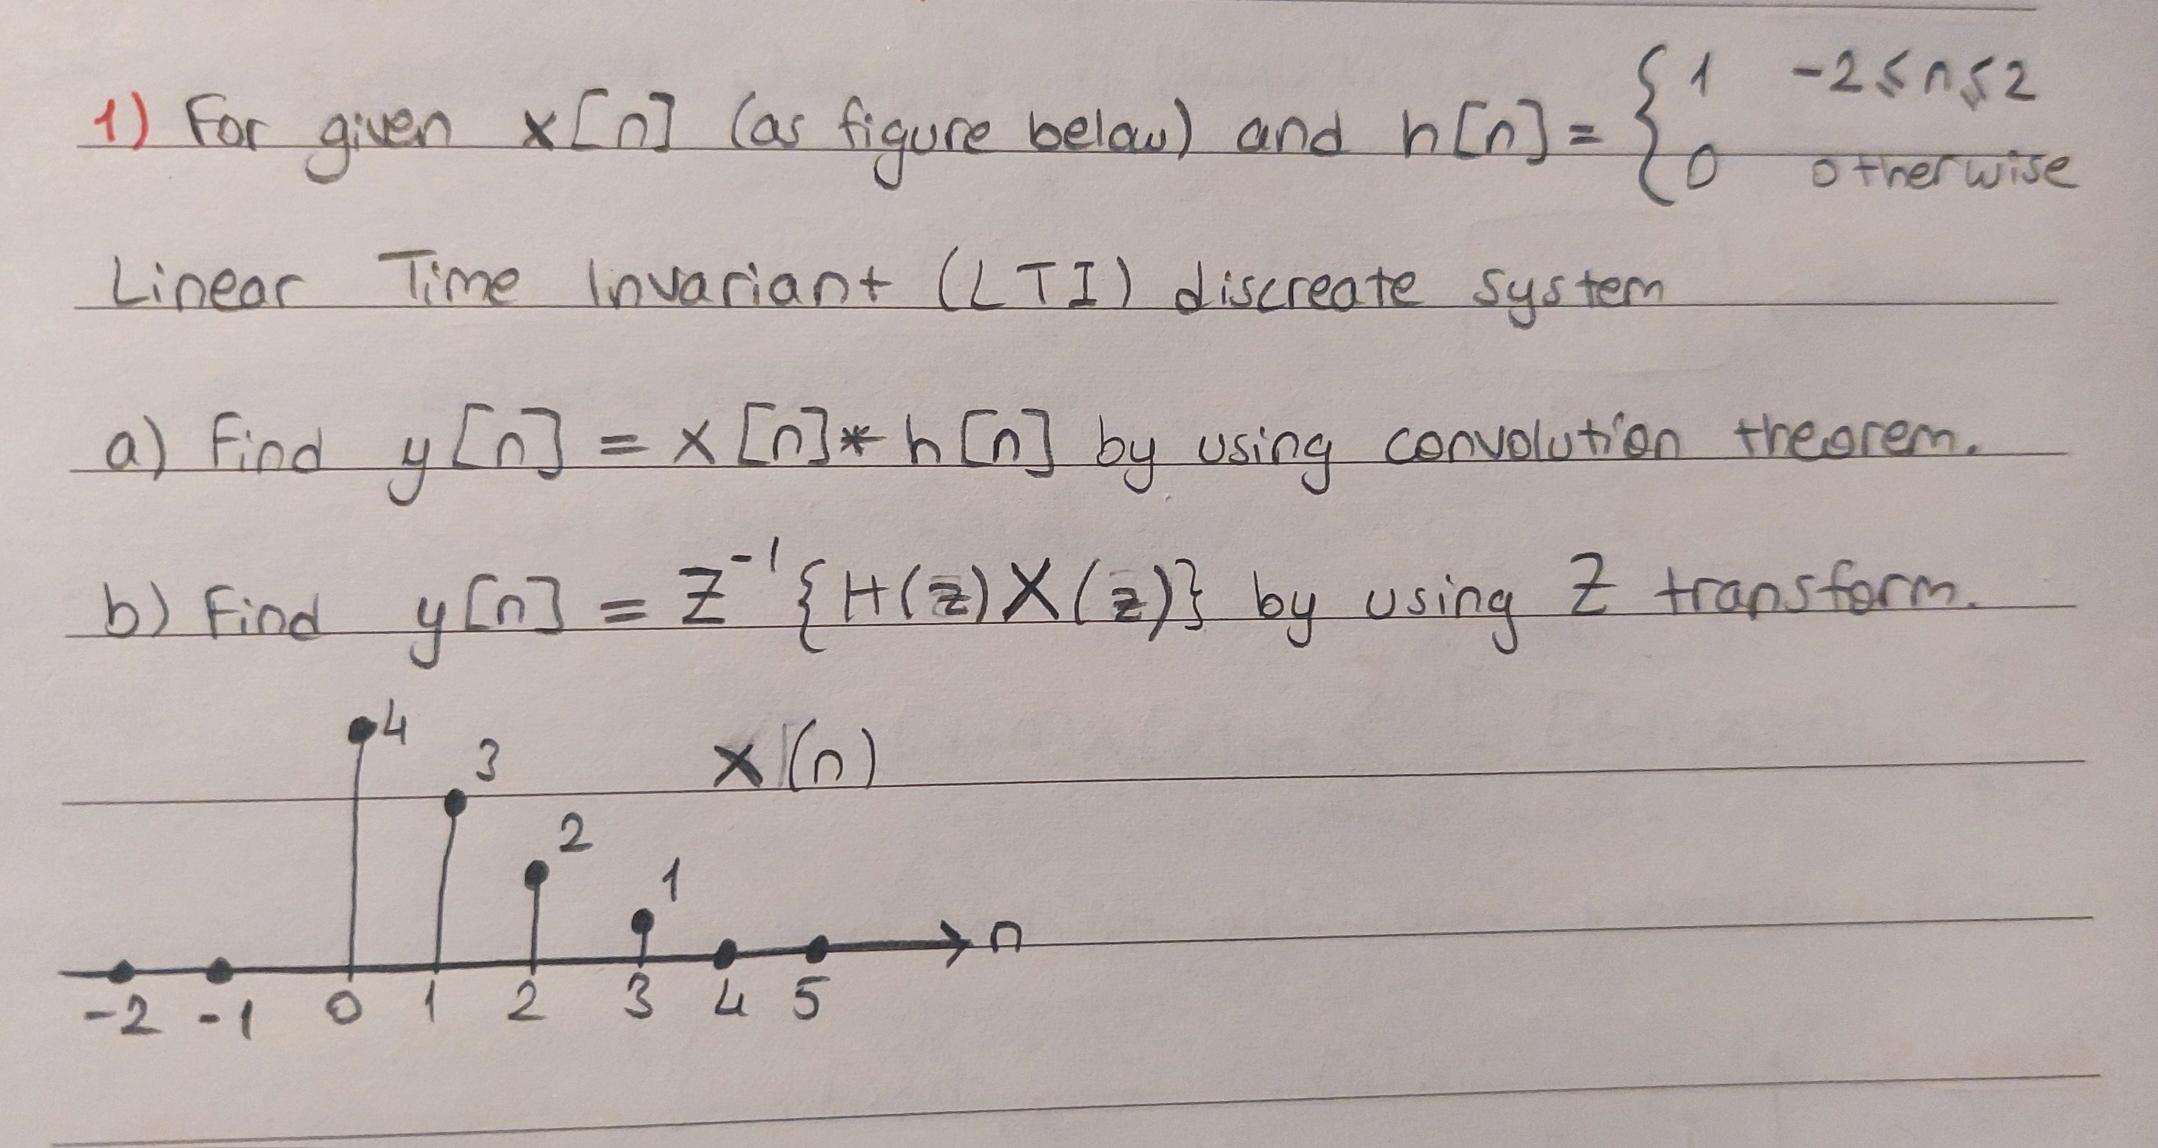 1) For given x[n] (as figure below) and h[n] = { 1 -2≤n≤2
0 otherwise
Linear Time Invariant (LTI) discreate system
a) Find y[n] = x[n]* h[n] by using convolution theorem.
b) Find y[n] = Z⁻¹ {H(z)X(z)} by using Z transform.
4
3
x(n)
2
1
n
-2 -1 0 1 2 3 4 5